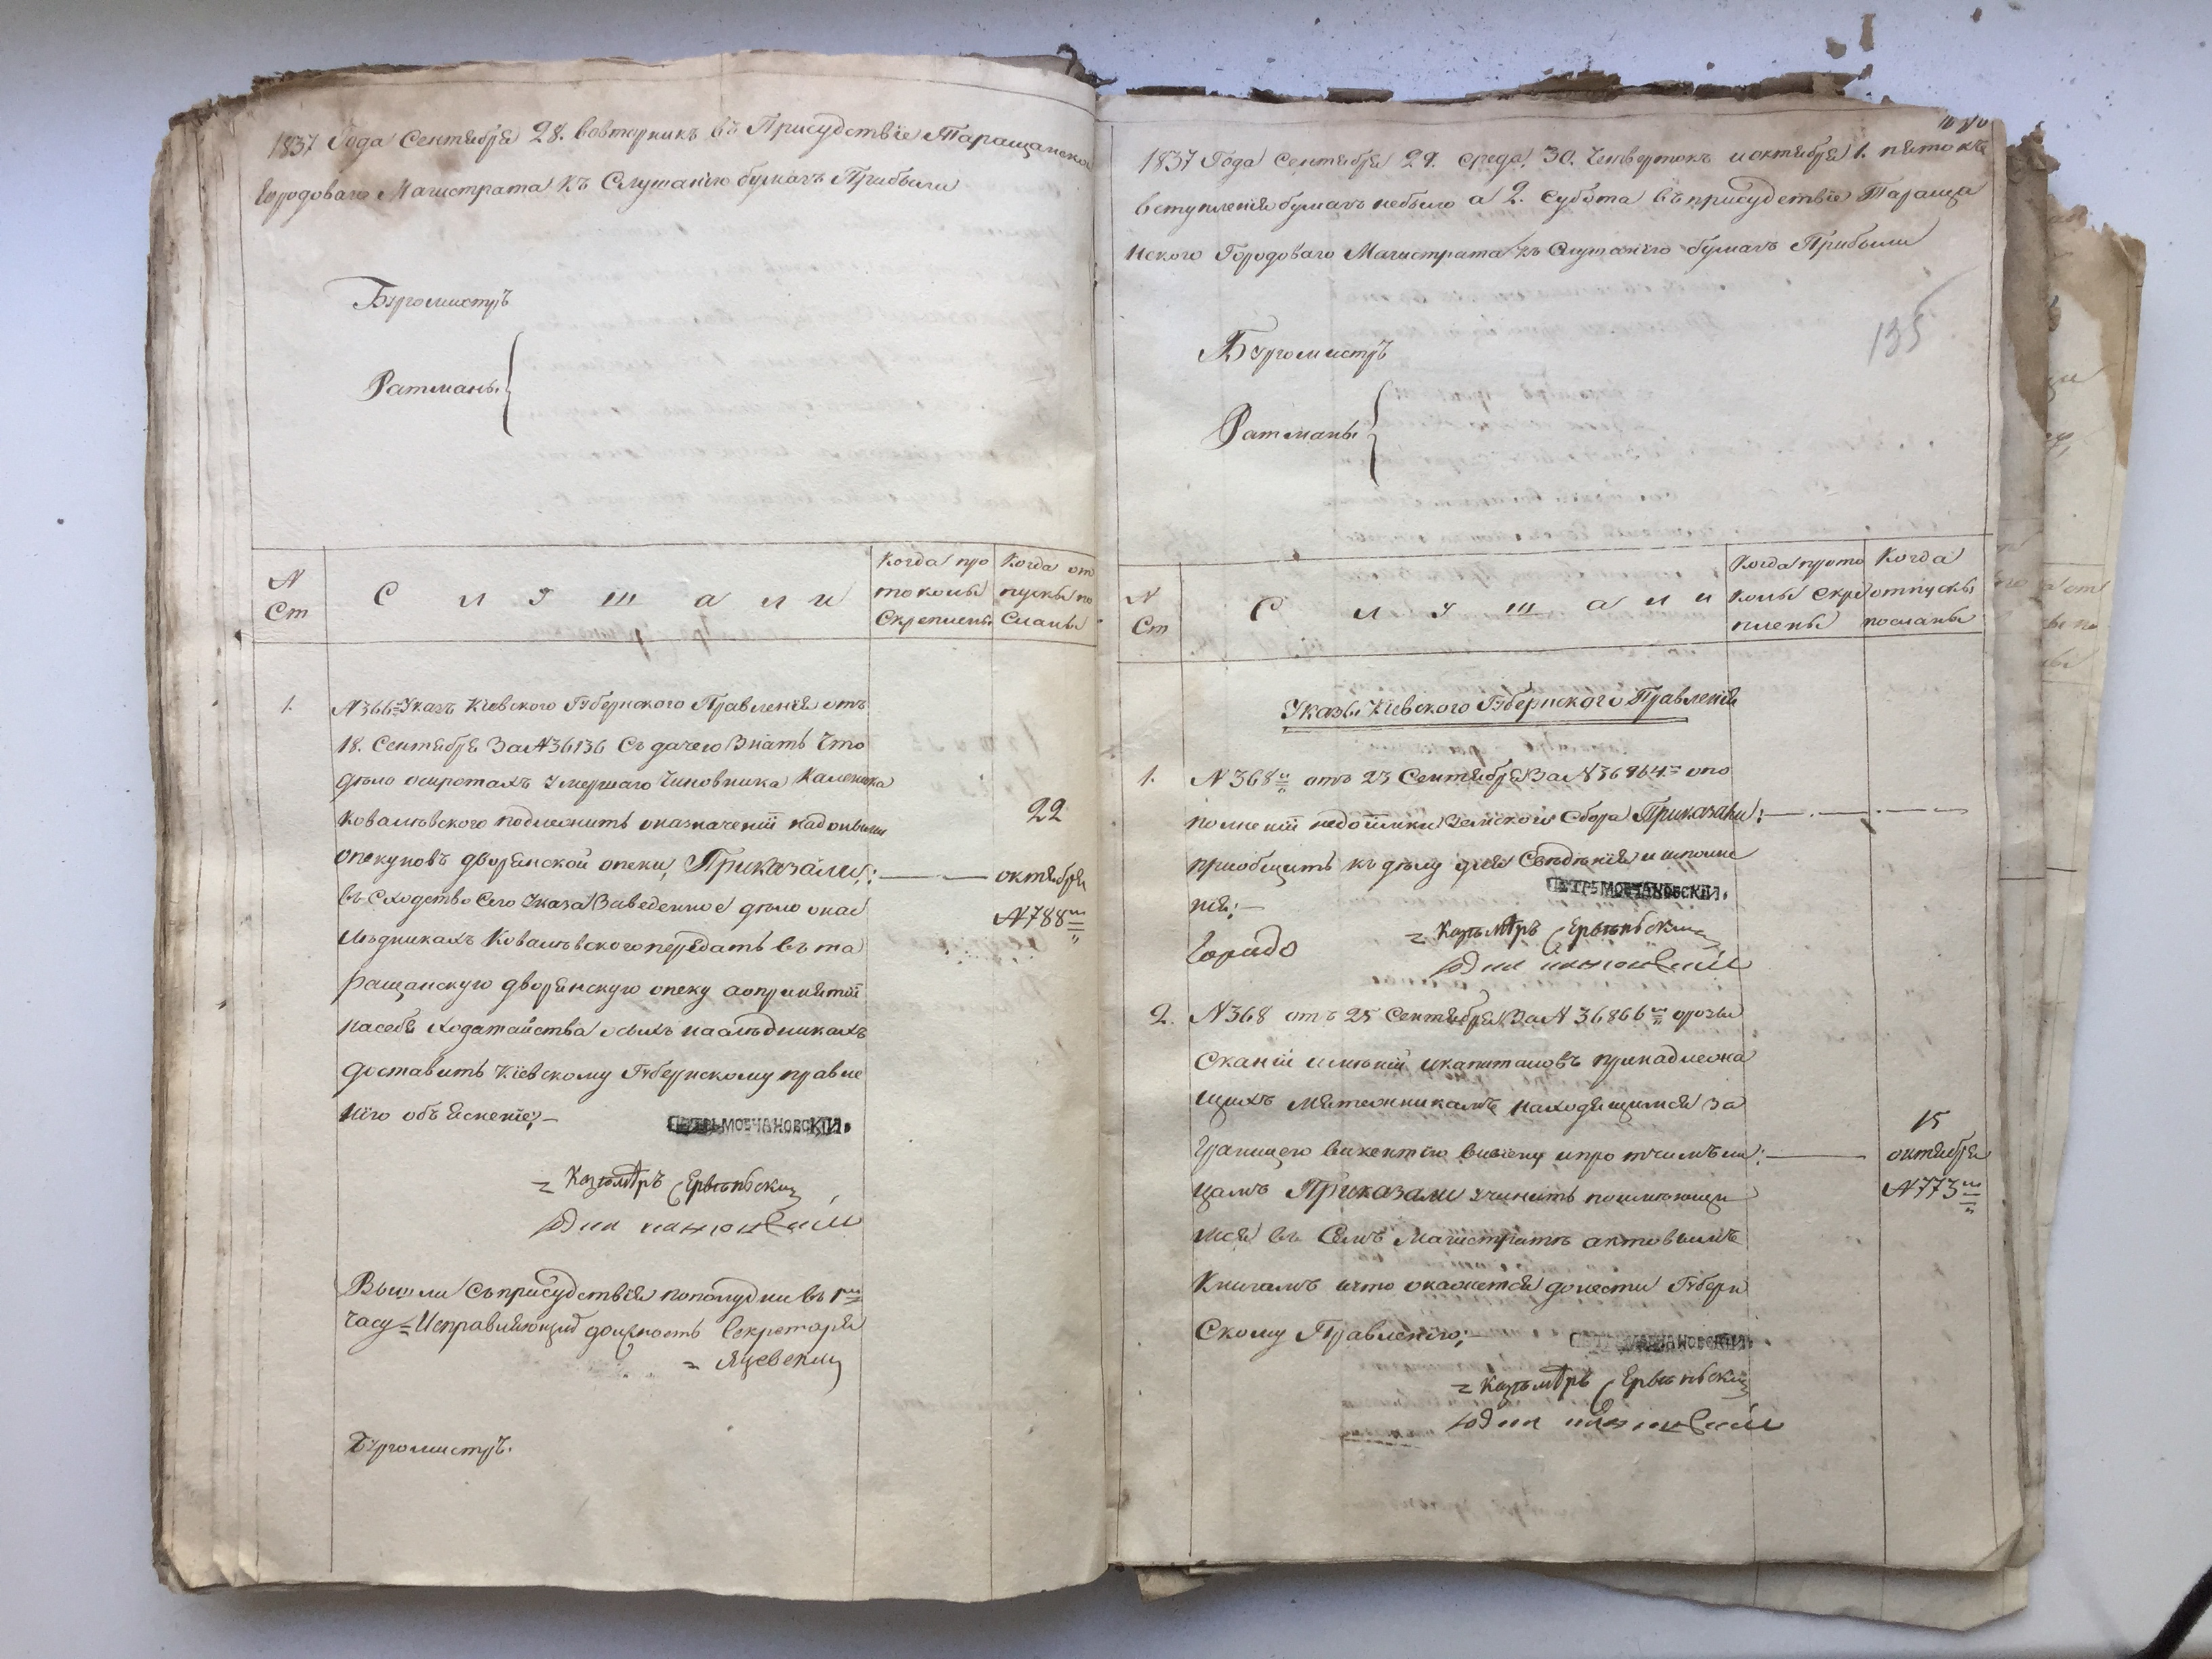 1837 Года Сентября 28. вовторникъ въ Присудствіе Таращанско
Городоваго Магистрата къ Слушанію бумагъ Прибыли
Бургомистръ
Ратманы
N Ст
С л у ш а л и
Когда про токолы Скреплены
Когда от пуски по Сланы
1.
N 366 Указъ Кіевского Губернского Правленія отъ
18. Сентября За N 36136 Съ дачего Знать Что
дѣло осиротахъ Умершаго Чиновника Каленика
Ковалѣвского подлежить оназначеніи надонымы
опекуновъ дворянской опеки, Приказали:
въ Сходство Сего Указа Заведенное дѣло онас
лѣдникахъ Ковалѣвского передать въ та
ращанскую дворянскую опеку аопринятіи
насебя ходатайства осихъ наслѣдникахъ
доставить Кіевскому Губернскому правле
нію объясненіе;
22
октября
N 788
ПЕТРЪ МОВЧАНОВСКІЙ.
Казымѣръ
Вышли Съприсудствія пополудни въ 1
часу Исправляющій должность Секретаря
Яцевскій
Бургомистръ.
1837 Года Сентября 29. среда, 30. Четвертокъ иоктября 1. пятокъ
вступленія бумагъ небыло а 2. Субота въ присудствіе Тараща
нского Городоваго Магистрата къ Слушанію бумагъ Прибыли
135
Бургомистръ
Ратманы
N Ст
С л у ш а л и
Когда прото колы Скре плены
Когда отпуски посланы
Указы Кіевского Губернского Правленія
1.
N 368 отъ 23 Сентября За N 36964 опо
полненіи недоимки Земского Сбора Приказали:
приобщить къ дѣлу для Свѣдѣнія и исполне
нія;
ПЕТРЪ МОВЧАНОВСКІЙ.
Казымѣръ
2.
N 368 отъ 25 Сентября За N 36866 орозы
Сканіи имѣній икапиталовъ принадлежа
щихъ мятежникамъ находящимся за
Границею викентію инро
цамъ Приказали учинить поимѣющи
мся въ Семъ Магистратѣ актовымъ
Книгамъ ичто окажется донести Губерн
Скому Правленію;
15
октября
N 773
ПЕТРЪ МОВЧАНОВСКІЙ.
Казымѣръ